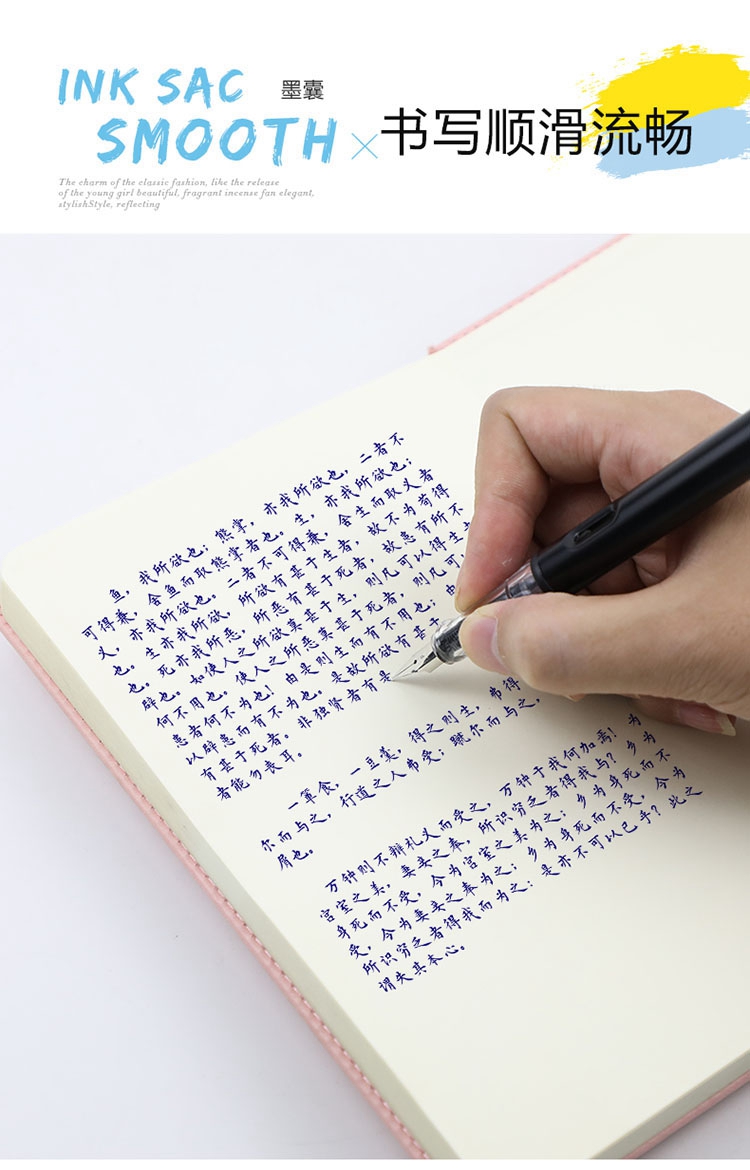 INK SAC 墨囊
SMOOTH×书写顺滑流畅
The charm of the classic fashion, like the release
of the young girl beautiful, fragrant incense fan elegant,
stylishStyle, reflecting
鱼，我所欲也；熊掌，亦我所欲也，二者不
可得兼，舍鱼而取熊掌者也。生，亦我所欲也；
义，亦我所欲也。二者不可得兼，舍生而取义者
也。生亦我所欲，所欲有甚于生者，故不为苟得
也。死亦我所恶，所恶有甚于死者，故患有所不
辟也。如使人之所欲莫甚于生，则凡可以得生
何不用也。使人之所恶莫甚于死者，则凡可
患者何不为也！由是则生而有不用也；
以辟患而有不为也。是故所欲有甚于
有甚于死者。非独贤者有是
者能勿丧耳。
一箪食，一豆羹，得之则生，弗得
尔而与之，行道之人弗受；蹴尔而与之，
屑也。
万钟则不辩礼义而受之，万钟于我何加焉！为
宫室之美，妻妾之奉，所识穷乏者得我与？乡为
身死而不受，今为宫室之美为之；乡为身死而不
受，今为妻妾之奉为之；乡为身死而不受，今为
所识穷乏者得我而为之：是亦不可以已乎？此之
谓失其本心。